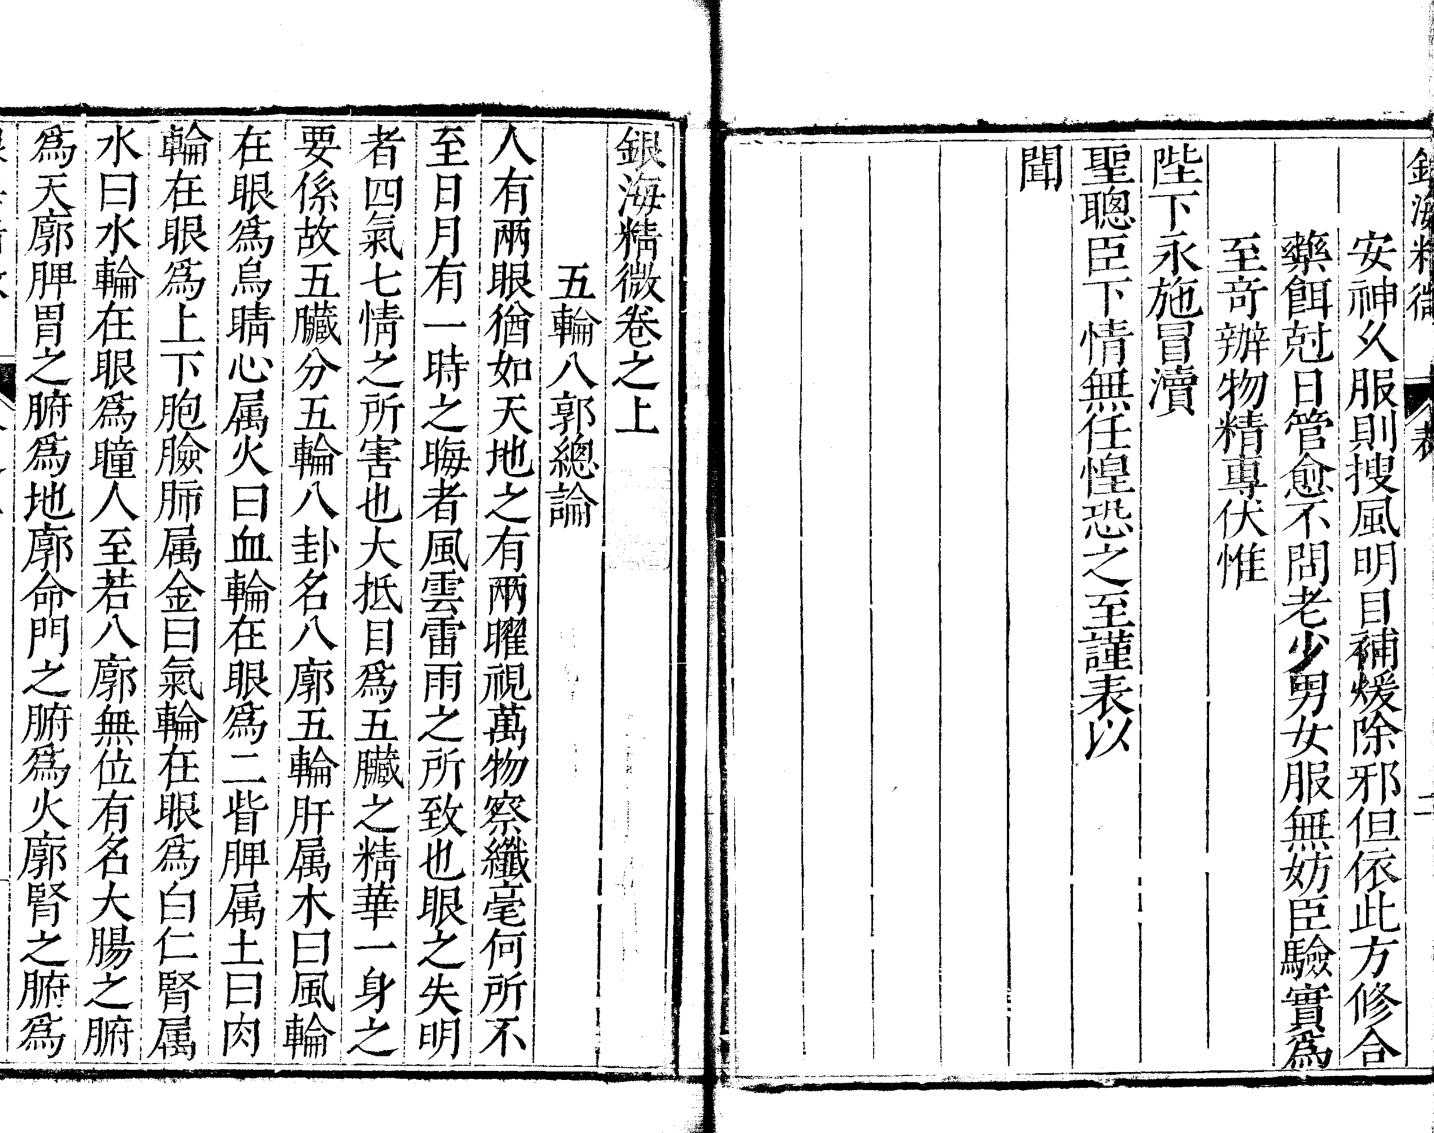 銀海精微
表
二
安神久服則搜風明目補煖除邪但依此方修合
藥餌尅日管愈不問老少男女服無妨臣驗實爲
至竒辦物精專伏惟
陛下永施冒瀆
聖聰臣下情無任惶恐之至謹表以
聞
銀海精微卷之上
五輪八郭總論
人有兩眼猶如天地之有兩曜視萬物察纖毫何所不
至日月有一時之晦者風雲雷雨之所致也眼之失明
者四氣七情之所害也大抵目爲五臟之精華一身之
要係故五臟分五輪八卦名八廓五輪肝属木曰風輪
在眼爲烏睛心属火曰血輪在眼爲二眥脾属土曰肉
輪在眼爲上下胞臉肺属金曰氣輪在眼爲白仁腎属
水曰水輪在眼爲瞳人至若八廓無位有名大腸之腑
爲天廓脾胃之腑爲地廓命門之腑爲火廓腎之腑爲